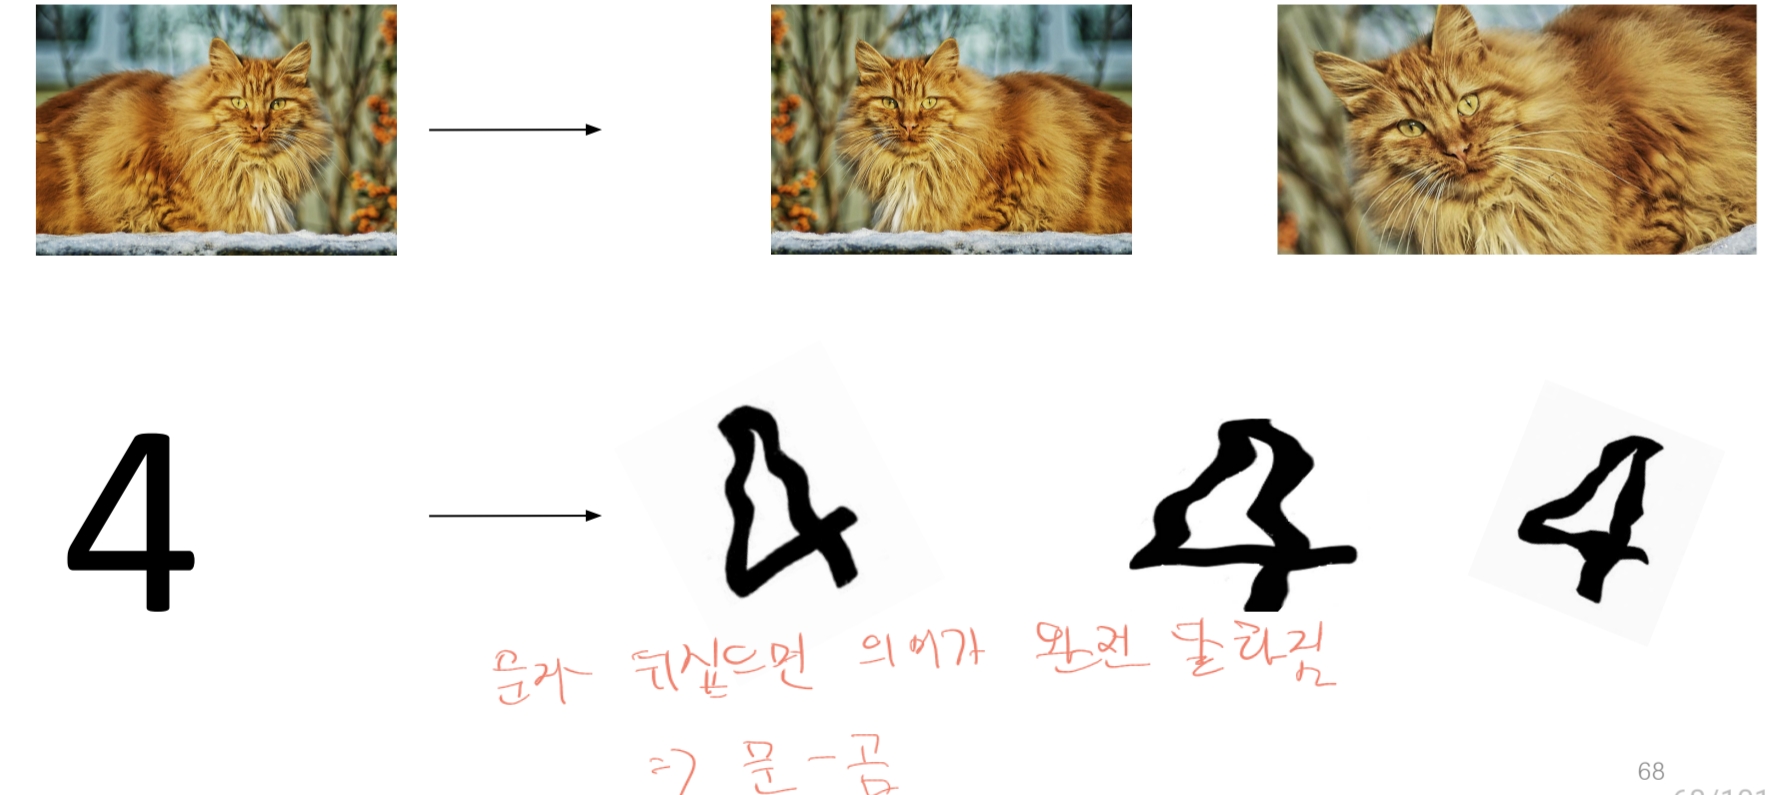 4 4 4 4
문자 뒤집으면 의미가 완전 달라짐
=> 문 - 곰
68